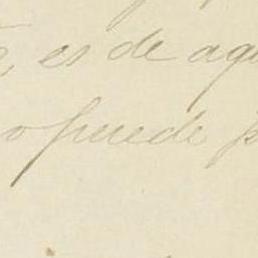 es de aqu
puede p